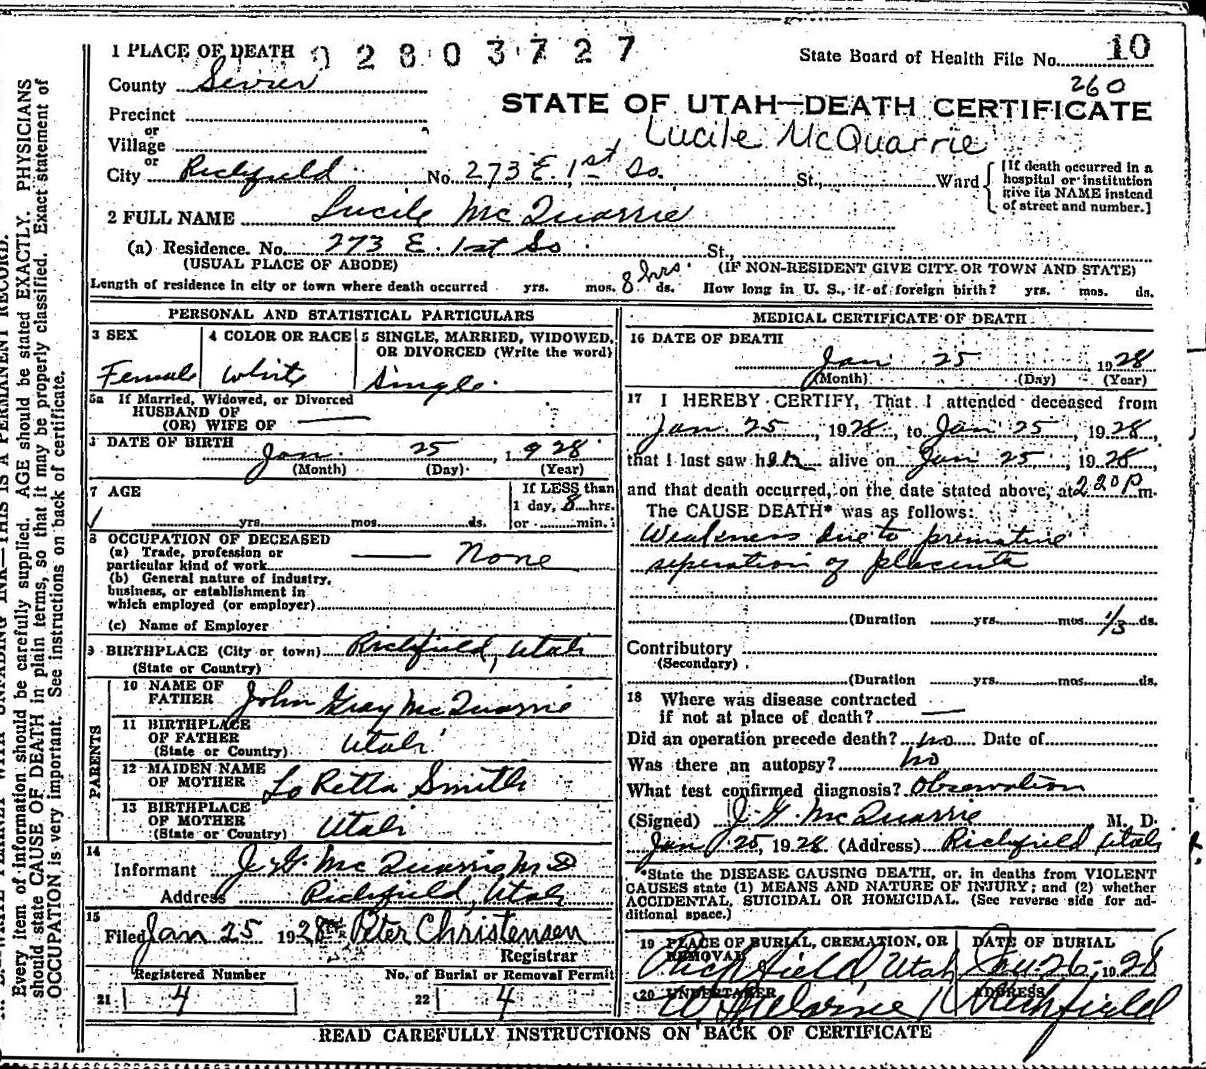 1 PLACE OF DEATH 02803727 State Board of Health File No. 10
260
County Sevier
STATE OF UTAH—DEATH CERTIFICATE
Precinct
or
Lucile McQuarrie
Village
or
City Richfield No. 273 E. 1st So. St., Ward
[If death occurred in a hospital or institution give its NAME instead of street and number.]
2 FULL NAME Lucile McQuarrie
(a) Residence. No. 273 E. 1st So St.,
(USUAL PLACE OF ABODE) (IF NON-RESIDENT GIVE CITY OR TOWN AND STATE)
Length of residence in city or town where death occurred yrs. mos. 8 hrs. ds. How long in U. S., if of foreign birth? yrs. mos. ds.
PERSONAL AND STATISTICAL PARTICULARS
3 SEX 4 COLOR OR RACE 5 SINGLE, MARRIED, WIDOWED,
OR DIVORCED (Write the word)
Female White Single
5a If Married, Widowed, or Divorced
HUSBAND OF
(OR) WIFE OF
DATE OF BIRTH Jan. 25 1928
(Month) (Day) (Year)
7 AGE If LESS than
1 day, 8 hrs.
yrs. mos. ds. or min.
8 OCCUPATION OF DECEASED
(a) Trade, profession or
particular kind of work None
(b) General nature of industry,
business, or establishment in
which employed (or employer)
(c) Name of Employer
9 BIRTHPLACE (City or town) Richfield, Utah
(State or Country)
PARENTS
10 NAME OF
FATHER John Gray McQuarrie
11 BIRTHPLACE
OF FATHER Utah
(State or Country)
12 MAIDEN NAME
OF MOTHER LaRetta Smith
13 BIRTHPLACE
OF MOTHER Utah
(State or Country)
14
Informant J. G. McQuarrie M D
Address Richfield, Utah
15
Filed Jan 25 1928 Peter Christensen
Registrar
Registered Number No. of Burial or Removal Permit
21 4 22 4
MEDICAL CERTIFICATE OF DEATH
16 DATE OF DEATH
Jan 25, 1928
(Month) (Day) (Year)
17 I HEREBY CERTIFY, That I attended deceased from
Jan 25, 1928, to Jan 25, 1928,
that I last saw her alive on Jan 25, 1928,
and that death occurred, on the date stated above, at 2 20 P m.
The CAUSE DEATH* was as follows:
Weakness due to premature
seperation of placenta
(Duration yrs. mos 1/3 ds.
Contributory
(Secondary)
(Duration yrs. mos. ds.
18 Where was disease contracted
if not at place of death?
Did an operation precede death? no Date of
Was there an autopsy? no
What test confirmed diagnosis? Observation
(Signed) J. G. McQuarrie M. D.
Jan 25, 1928 (Address) Richfield Utah
*State the DISEASE CAUSING DEATH, or, in deaths from VIOLENT
CAUSES state (1) MEANS AND NATURE OF INJURY; and (2) whether
ACCIDENTAL, SUICIDAL OR HOMICIDAL. (See reverse side for ad-
ditional space.)
19 PLACE OF BURIAL, CREMATION, OR DATE OF BURIAL
REMOVAL
Richfield Utah Jan 26, 1928
20 UNDERTAKER ADDRESS
Richfield
READ CAREFULLY INSTRUCTIONS ON BACK OF CERTIFICATE
Every item of information should be carefully supplied. AGE should be stated EXACTLY. PHYSICIANS
should state CAUSE OF DEATH in plain terms, so that it may be properly classified. Exact statement of
OCCUPATION is very important. See instructions on back of certificate.